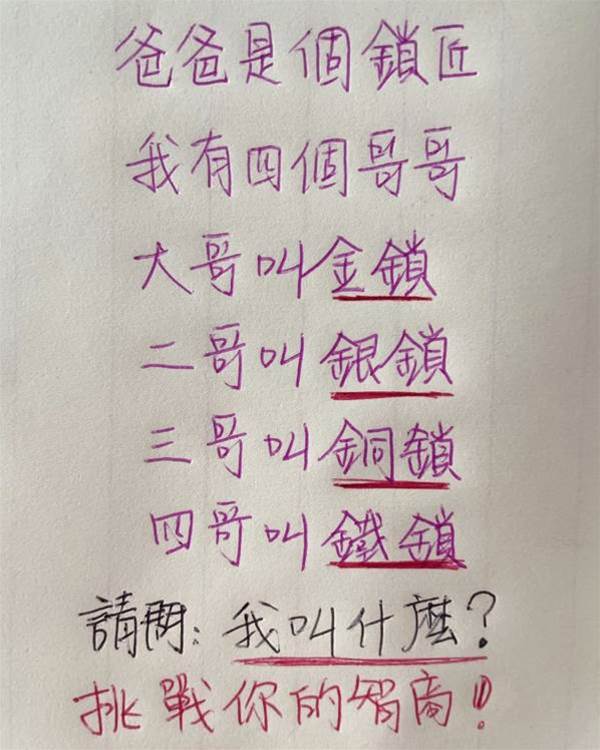 爸爸是個鎖匠
我有四個哥哥
大哥叫金鎖
二哥叫銀鎖
三哥叫銅鎖
四哥叫鐵鎖
請問：我叫什麼？
挑戰你的智商！